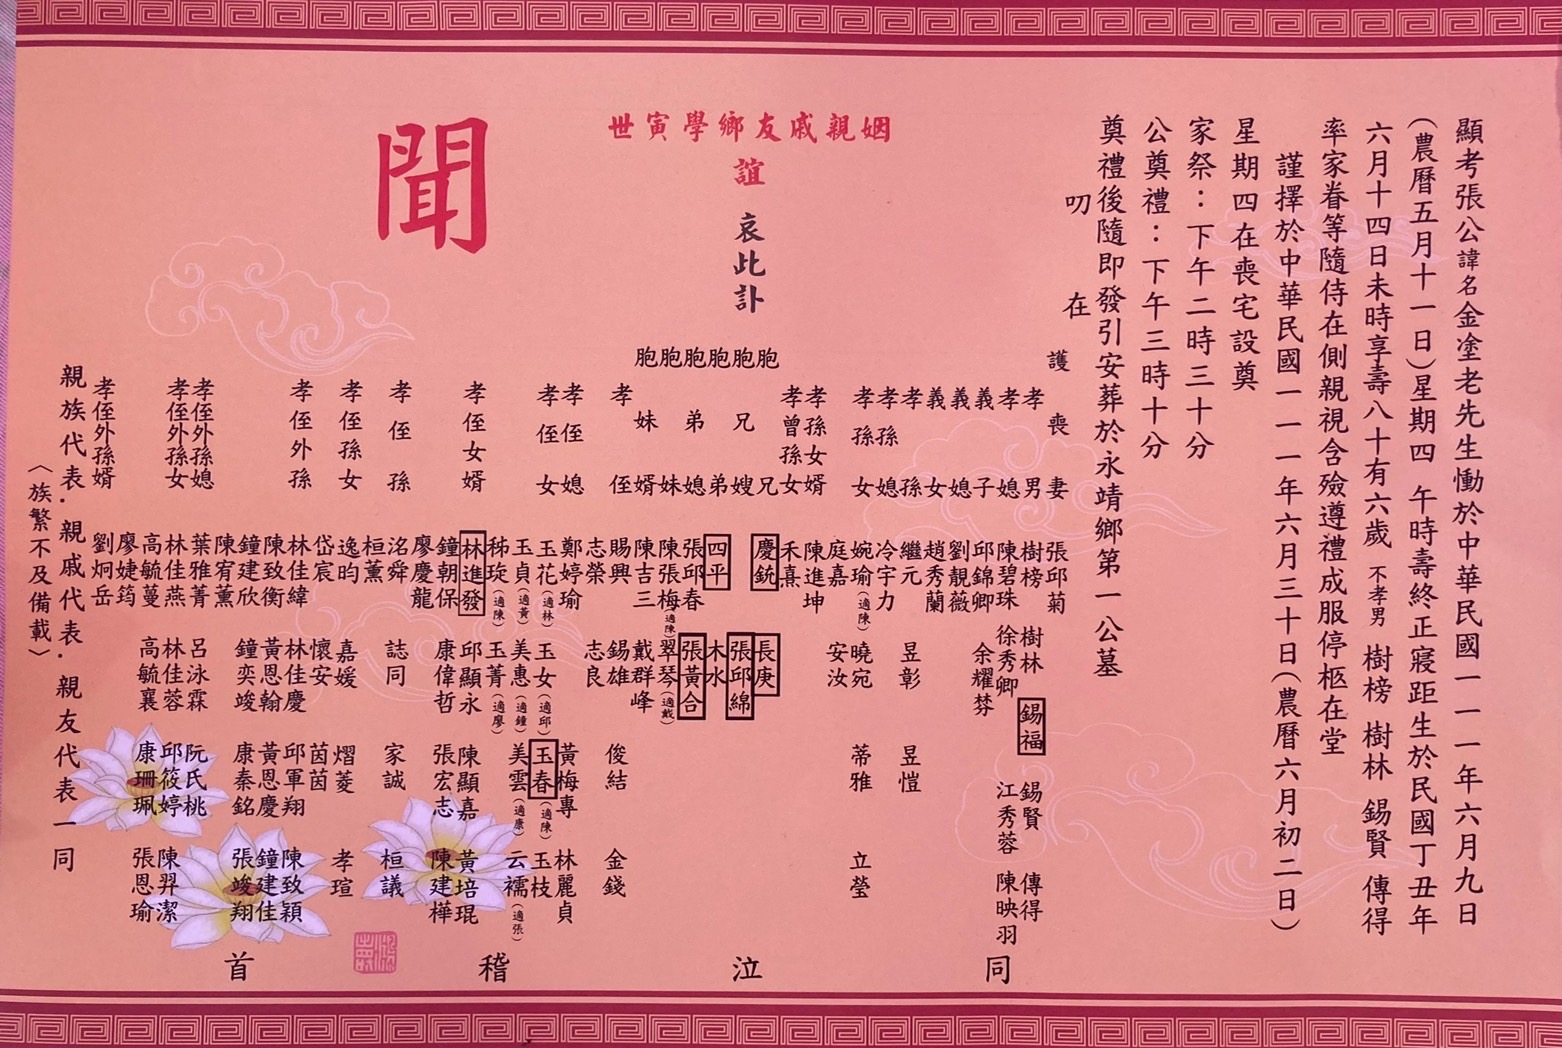 顯考張公諱名金塗老先生慟於中華民國一一一年六月九日
(農曆五月十一日)星期四 午時壽終正寢距生於民國丁丑年
六月十四日未時享壽八十有六歲 不孝男 樹榜 樹林 錫賢 傳得
率家眷等隨侍在側親視含殮遵禮成服停柩在堂
謹擇於中華民國一一一年六月三十日(農曆六月初二日)
星期四在喪宅設奠
家祭：下午二時三十分
公奠禮：下午三時十分
奠禮後隨即發引安葬於永靖鄉第一公墓
叨 在
姻親戚友鄉學寅世
誼
哀此訃
聞
護喪妻 張邱菊
孝男 樹榜 樹林 錫福 錫賢 傳得
孝媳 陳碧珠 徐秀卿 江秀蓉 陳映羽
義子 邱錦卿 余耀棼
義媳 劉靚薇
義女 趙秀蘭
孝孫 繼元 昱彰 昱愷
孝孫媳 冷宇力
孝孫女 婉瑜(適陳) 曉宛 蒂雅 立瑩
庭嘉 安汝
孝孫女婿 陳進坤
孝曾孫女 禾熹
胞兄 慶銃 長庚
胞兄嫂 張邱綿
胞弟 四平 木水
胞弟媳 張邱春 張黃合
胞妹 陳張梅(適陳) 翠琴(適戴)
胞妹婿 陳吉三 戴群峰
孝侄 賜興 錫雄 俊結 金錢
志榮 志良
孝侄媳 鄭婷瑜 黃梅專 林麗貞
孝侄女 玉花(適林) 玉女(適邱) 玉春(適陳) 玉枝
玉貞(適黃) 美惠(適鍾) 美雲(適康) 云襦(適張)
秭琁(適陳) 玉菁(適廖)
孝侄女婿 林進發 邱顯永 陳顯嘉 黃培琨
鐘朝保 康偉哲 張宏志 陳建樺
廖慶龍
孝侄孫 洺舜 誌同 家誠 桓議
桓薰
孝侄孫女 逸昀 嘉媛 熠菱 孝瑄
岱宸 懷安 茵茵
孝侄外孫 林佳緯 林佳慶 邱軍翔 陳致穎
陳致衡 黃恩翰 黃恩慶 鐘建佳
鐘建欣 鐘奕竣 康秦銘 張竣翔
陳宥薰
孝侄外孫媳 葉雅菁 呂泳霖 阮氏桃
孝侄外孫女 林佳燕 林佳蓉 邱筱婷 陳羿潔
高毓蔓 高毓襄 康珊珮 張恩瑜
廖婕筠
孝侄外孫婿 劉炯岳
親族代表．親戚代表．親友代表一同
〈族繁不及備載〉
同 泣 稽 首